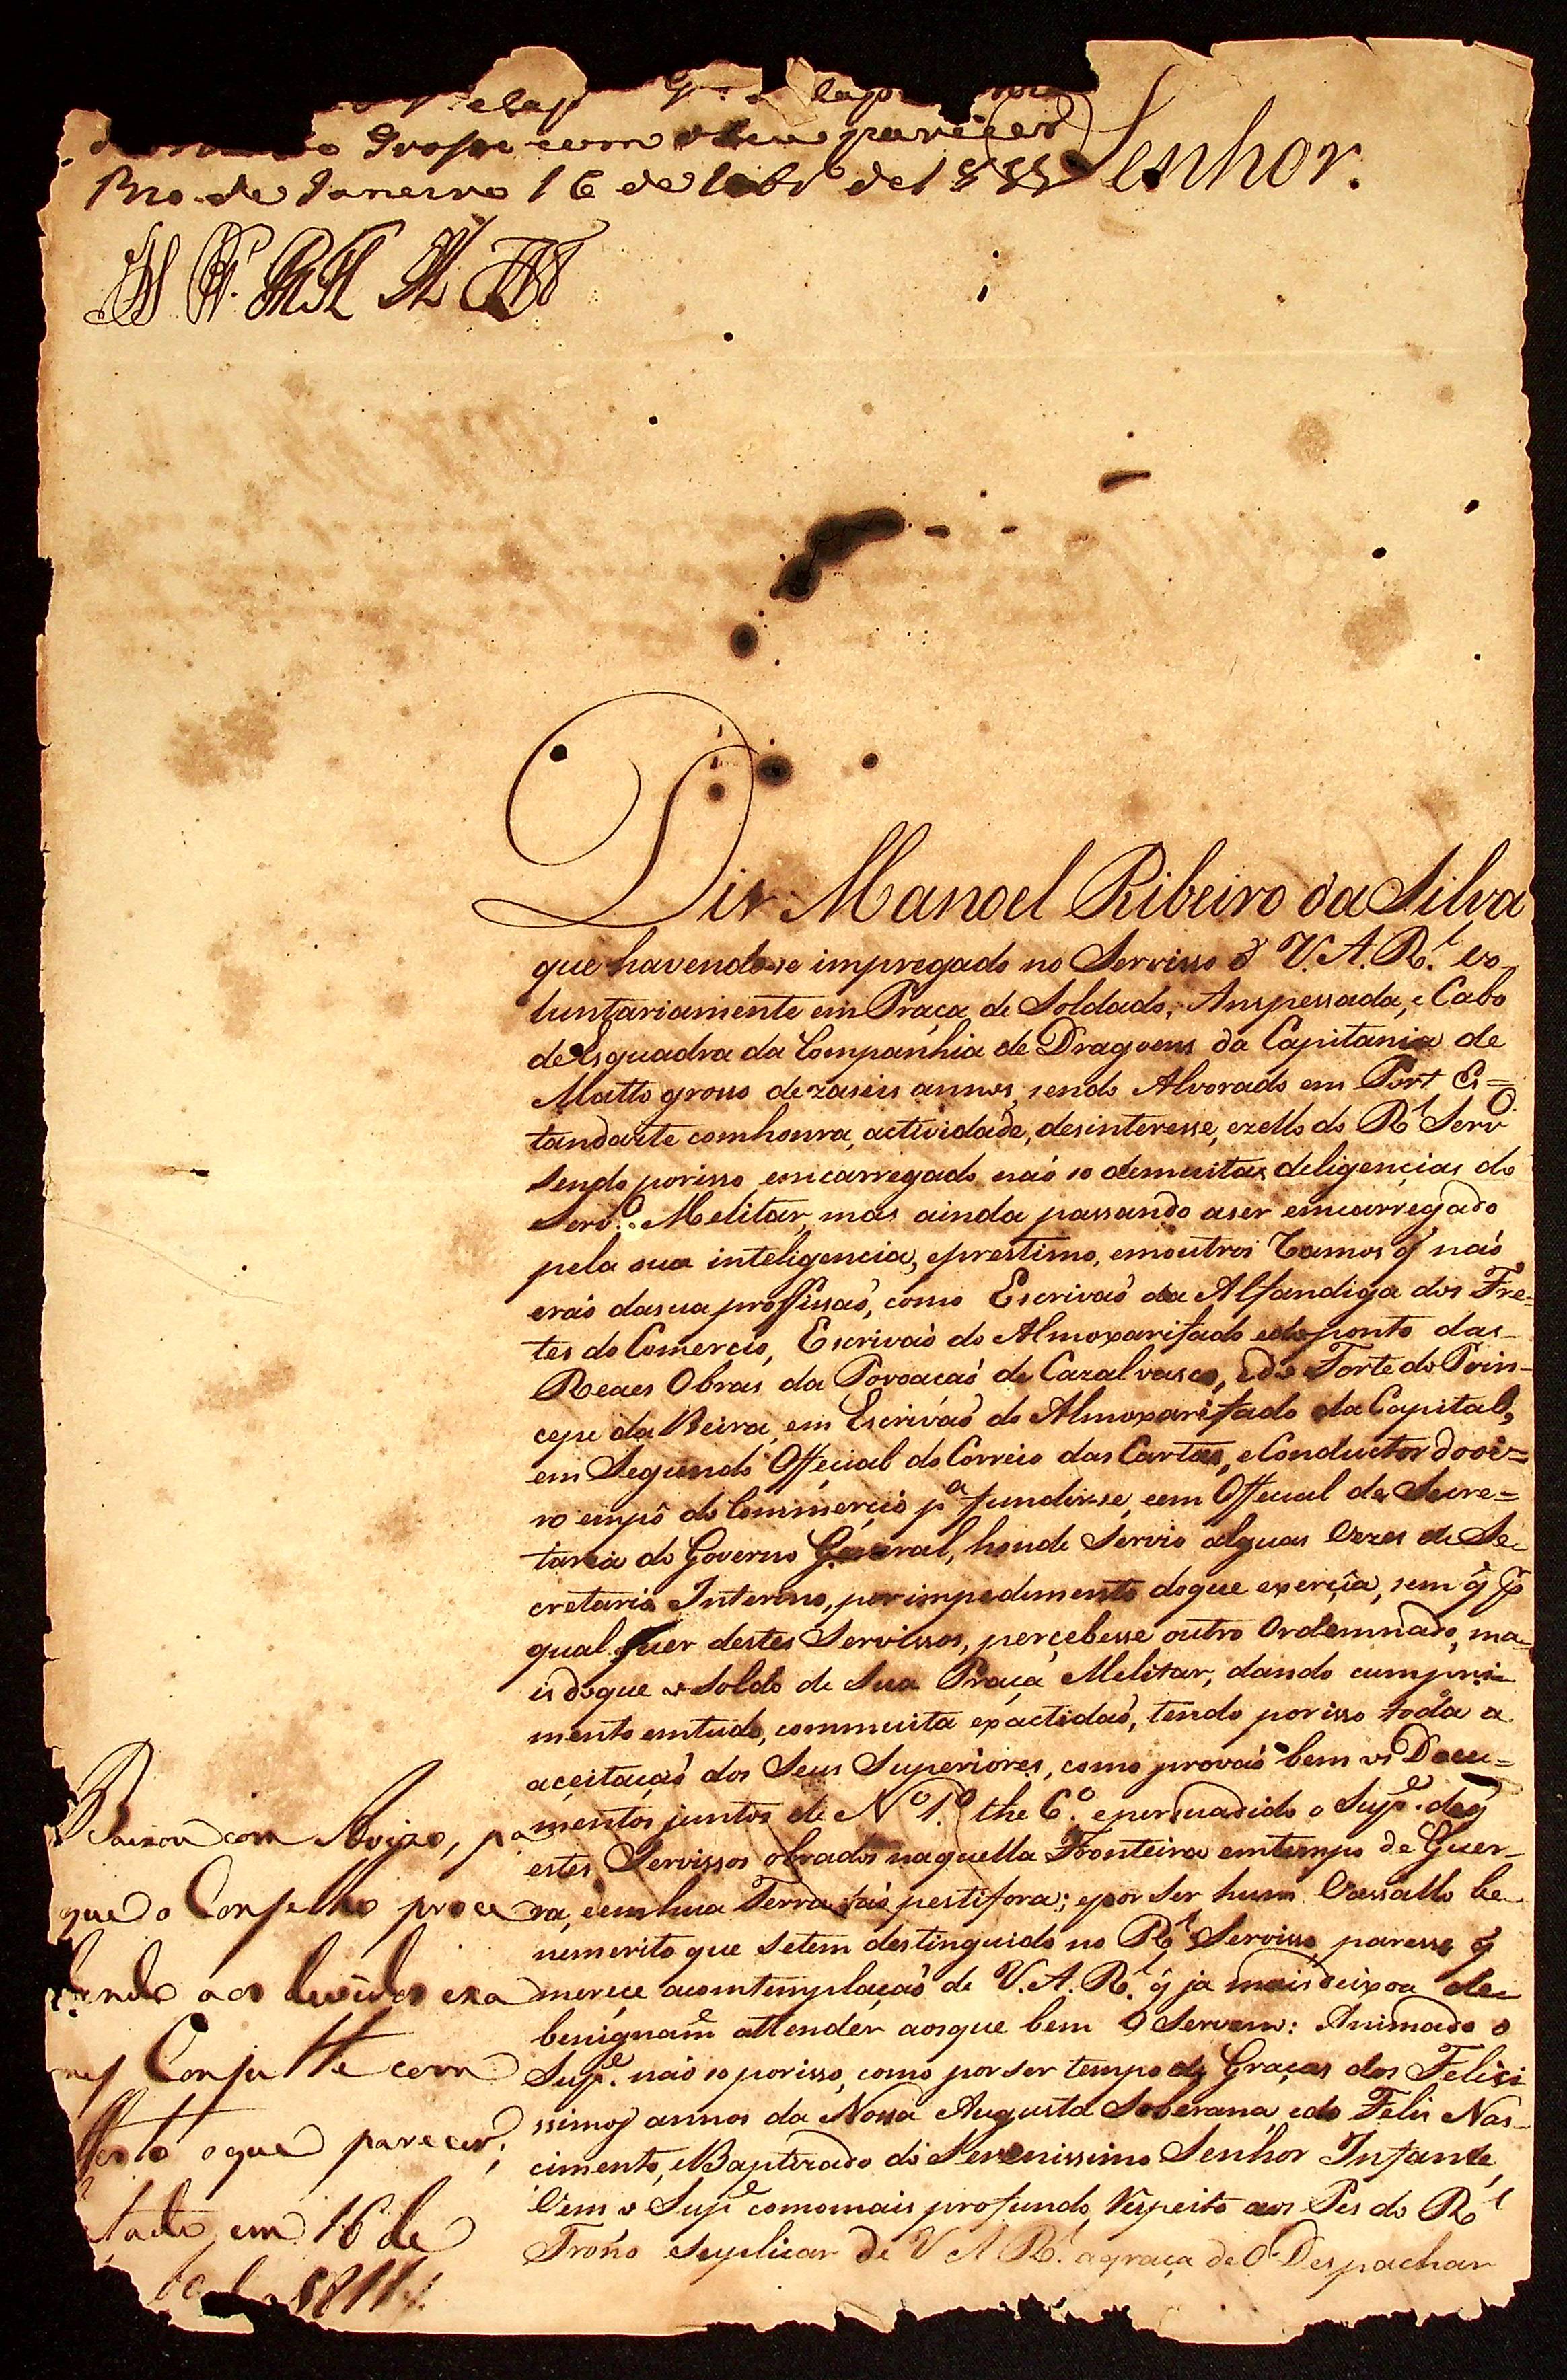 com o seu parecer
Rio de Janeiro 16 de de 1811
Senhor.
Diz Manoel Ribeiro da Silva
que havendo-se impregado no Servisso d' V. A. R.l vo
luntariamente em Praça de Soldado, Anspessada, e Cabo
de Esquadra da Companhia de Dragoens da Capitania de
Matto grosso dezaseis annos, sendo Alvorado em Port Es=
tandarte comhonra, actividade, desinteresse, ezello do R.l Serv.o
sendo porisso emcarregado naõ so demuitas deligencias do
Serv.o Melitar, mas ainda passando aser emcarregado
pela sua inteligencia, eprestimo, emoutros Ramos q̃ naõ
eraõ dasua proffissaõ, como Escrivaõ da Alfandiga dos Fre=
tes do Comercio, Escrivaõ do Almoxarifado edoponto das
Reaes Obras da Povoacaõ de Cazalvasco, edo Forte do Prin-
cepe da Beira, em Escrivaõ do Almoxarifado da Capital,
em Segundo Official do Correio das Cartas, eConductor dooi=
ro empó do Commercio p.a fundirse, eem Official da Secre=
taria do Governo General, honde Servio alguas Vezes de Se
cretario Interino, porimpedimento doque exercia, sem q̃ p̃
qual quer destes Servissos, percebesse outro Ordemnado, ma=
is doque o Soldo de Sua Praça Melitar, dando cumpri=
mento emtudo, commuita exactidaõ, tendo porisso toda a
aceitaçaõ dos Seus Superiores, como provaõ bem os Docu=
mentos juntos de N.o 1.o the 6.o epersuadido o Sup.e deq̃
estes Servissos obrados naquella Fronteira emtempo de Guer-
ra, eemhua Terra taõ pestifora; epor ser hum Vassallo be
nemerito que setem destinguido no R.l Servisso, paresse q̃
merece acomtemplaçaõ de V. A. R.l q̃ ja mais deixou de
benignam.e attender aosque bem O Servem: Animado o
Sup.e naõ so porisso, como porser tempo de Graças dos Felici
ssimos annos da Nossa Augusta Soberana, edo Felis Nas-
cimento, eBaptizado do Serenissimo Senhor Infante,
Vem o Sup.e comomais profundo, Respeito aos Pes do R.l
Trono Suplicar de V A R.l agraça deO Despachar
Baixou com Avizo, p.a
que o Conselho proce
dendo aos devidos exa
mes Consulte com
effeito o que parecer;
em 16 de
1811